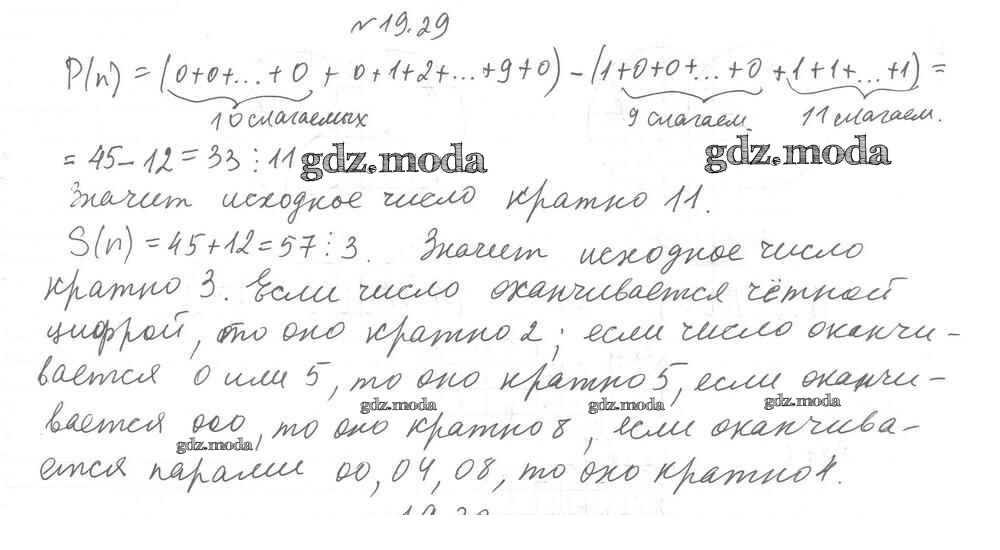 №19.29
P(n) = (0+0+...+0 + 0+1+2+...+9+0) - (1+0+0+...+0 + 1+1+...+1) =
10 слагаемых 9 слагаем. 11 слагаем.
= 45-12 = 33 ⋮ 11 gdz.moda gdz.moda
Значит исходное число кратно 11.
S(n) = 45+12 = 57 ⋮ 3. Значит исходное число
кратно 3. Если число оканчивается чётной
цифрой, то оно кратно 2; если число оканчи-
вается 0 или 5, то оно кратно 5, если оканчи-
gdz.moda gdz.moda gdz.moda
вается 000, то оно кратно 8, если оканчива-
gdz.moda
ется парами 00, 04, 08, то оно кратно 4.